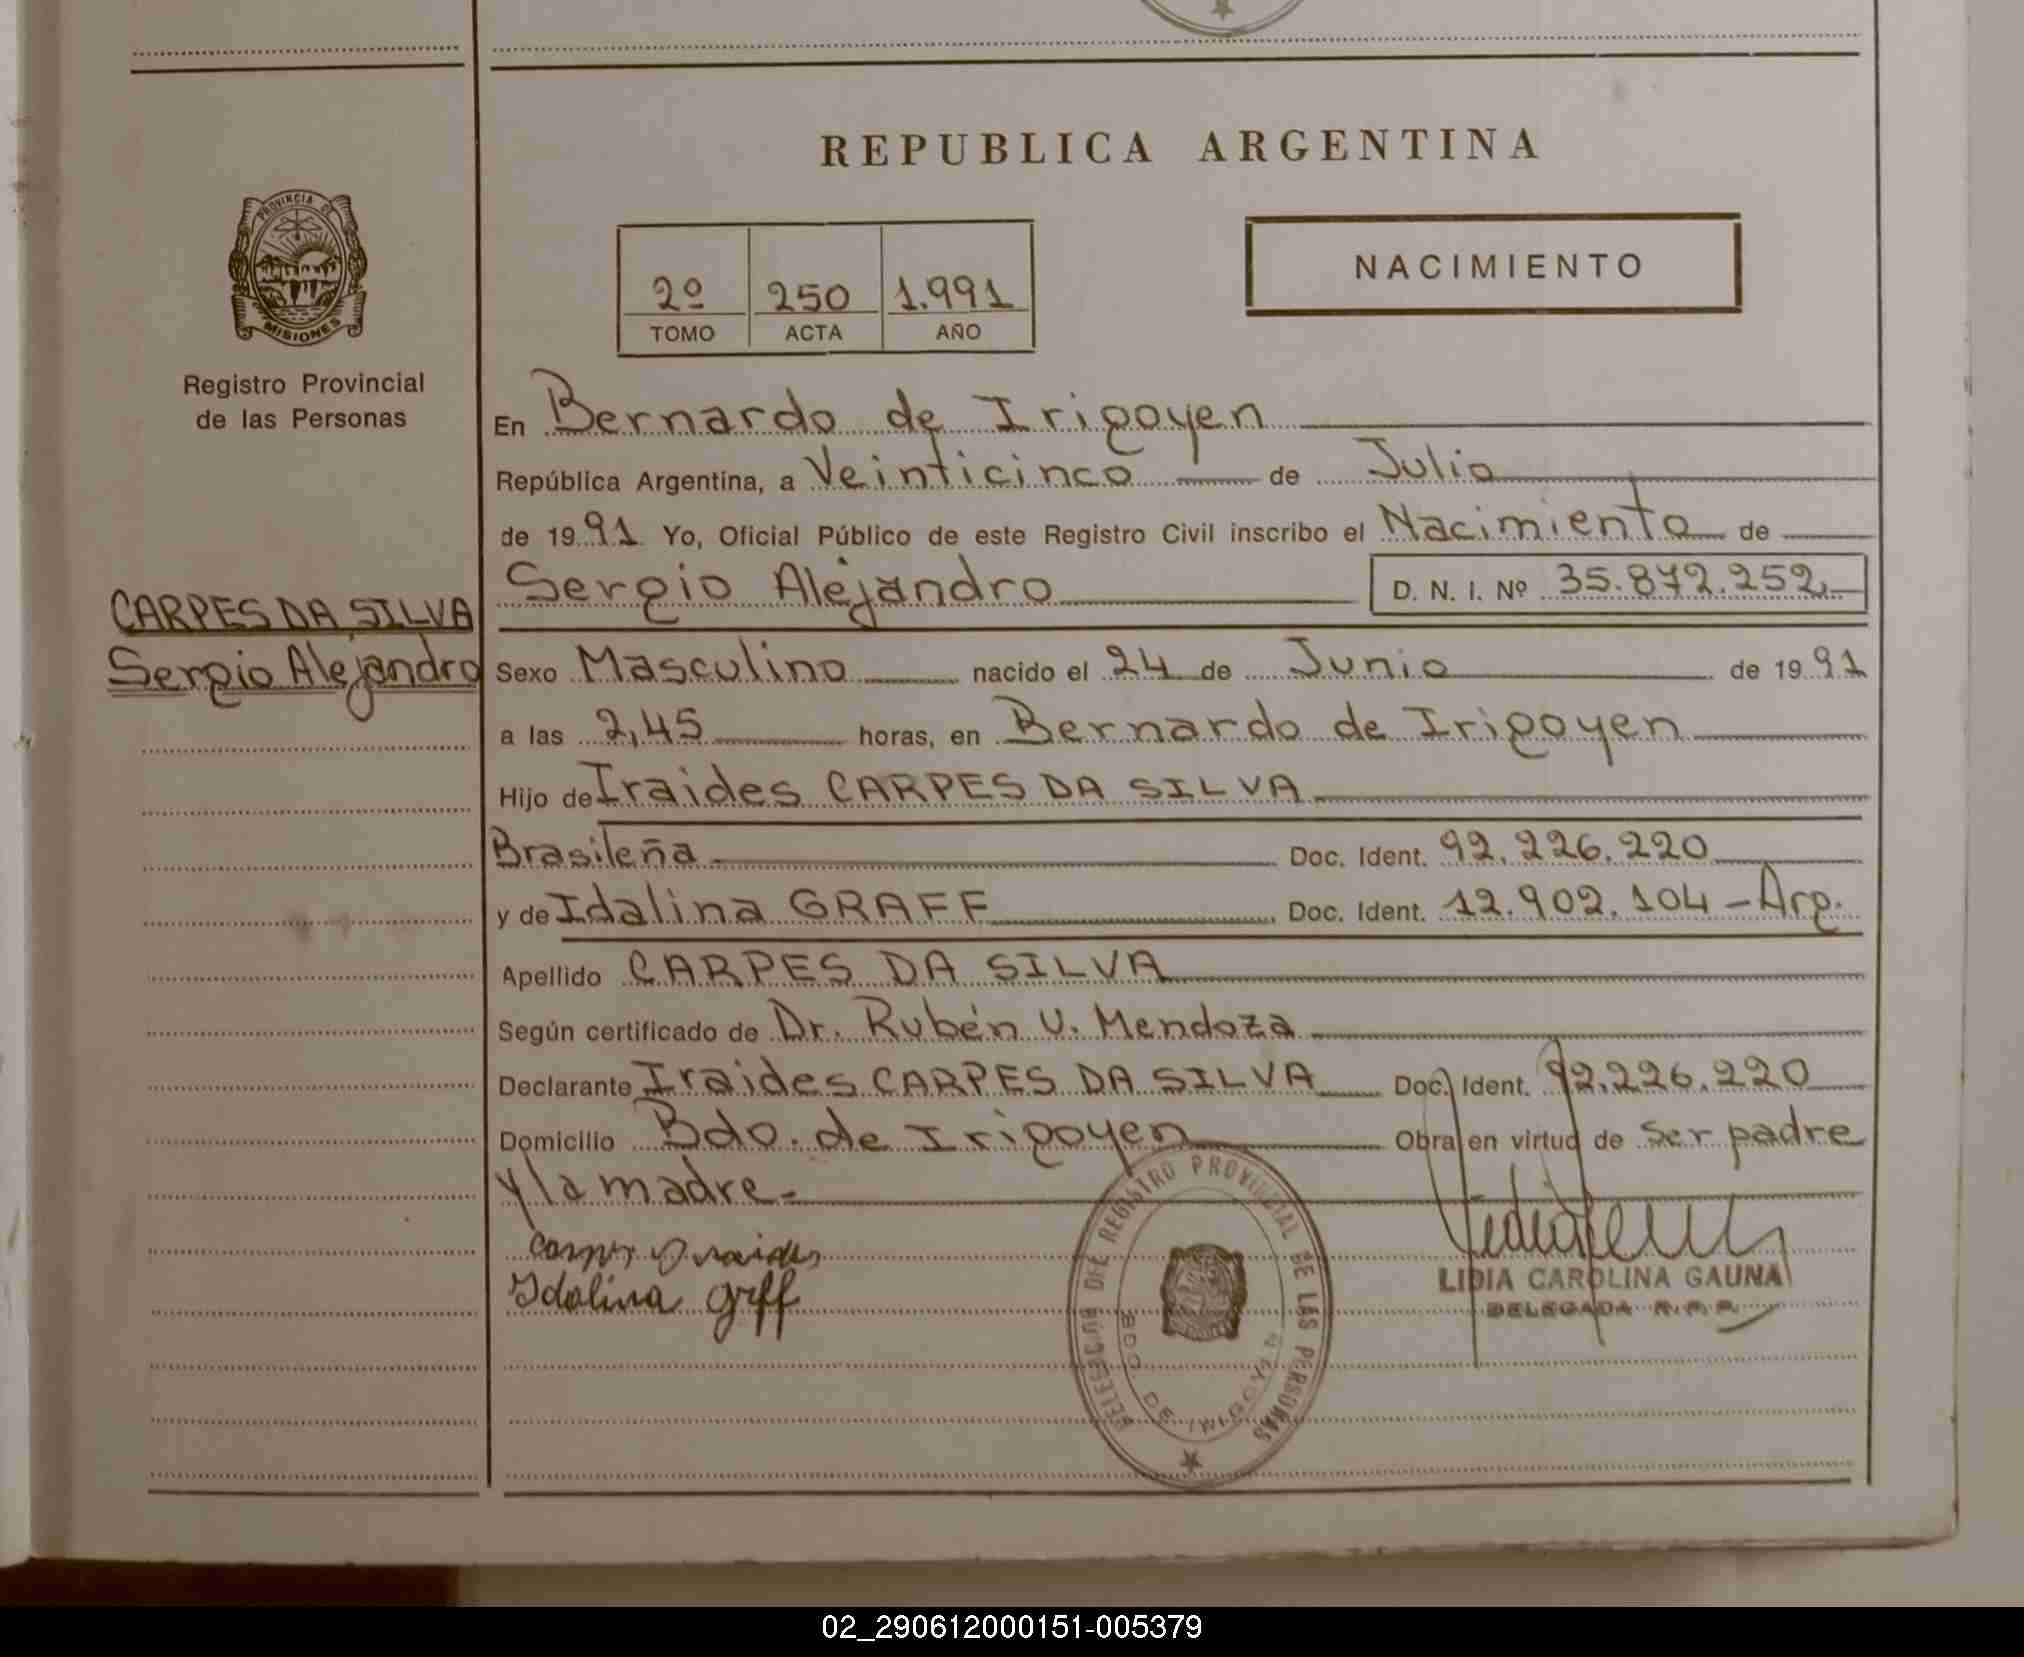 REPUBLICA ARGENTINA
PROVINCIA DE
MISIONES
Registro Provincial
de las Personas
2º 250 1.991
TOMO ACTA AÑO
NACIMIENTO
En Bernardo de Irigoyen
República Argentina, a Veinticinco de Julio
de 1991 Yo, Oficial Público de este Registro Civil inscribo el Nacimiento de
Sergio Alejandro D. N. I. Nº 35.872.252.
CARPES DA SILVA
Sergio Alejandro
Sexo Masculino nacido el 24 de Junio de 1991
a las 2,45 horas, en Bernardo de Irigoyen
Hijo de Iraides CARPES DA SILVA
Brasileña Doc. Ident. 92.226.220
y de Idalina GRAFF Doc. Ident. 12.902.104 - Arg.
Apellido CARPES DA SILVA
Según certificado de Dr. Rubén V. Mendoza
Declarante Iraides CARPES DA SILVA Doc. Ident. 92.226.220
Domicilio Bdo. de Irigoyen Obra en virtud de ser padre
y la madre.-
Idalina Grff
LIDIA CAROLINA GAUNA
DELEGADA R.P.P.
DELEGACION DEL REGISTRO PROVINCIAL DE LAS PERSONAS
BDO. DE IRIGOYEN
02_290612000151-005379